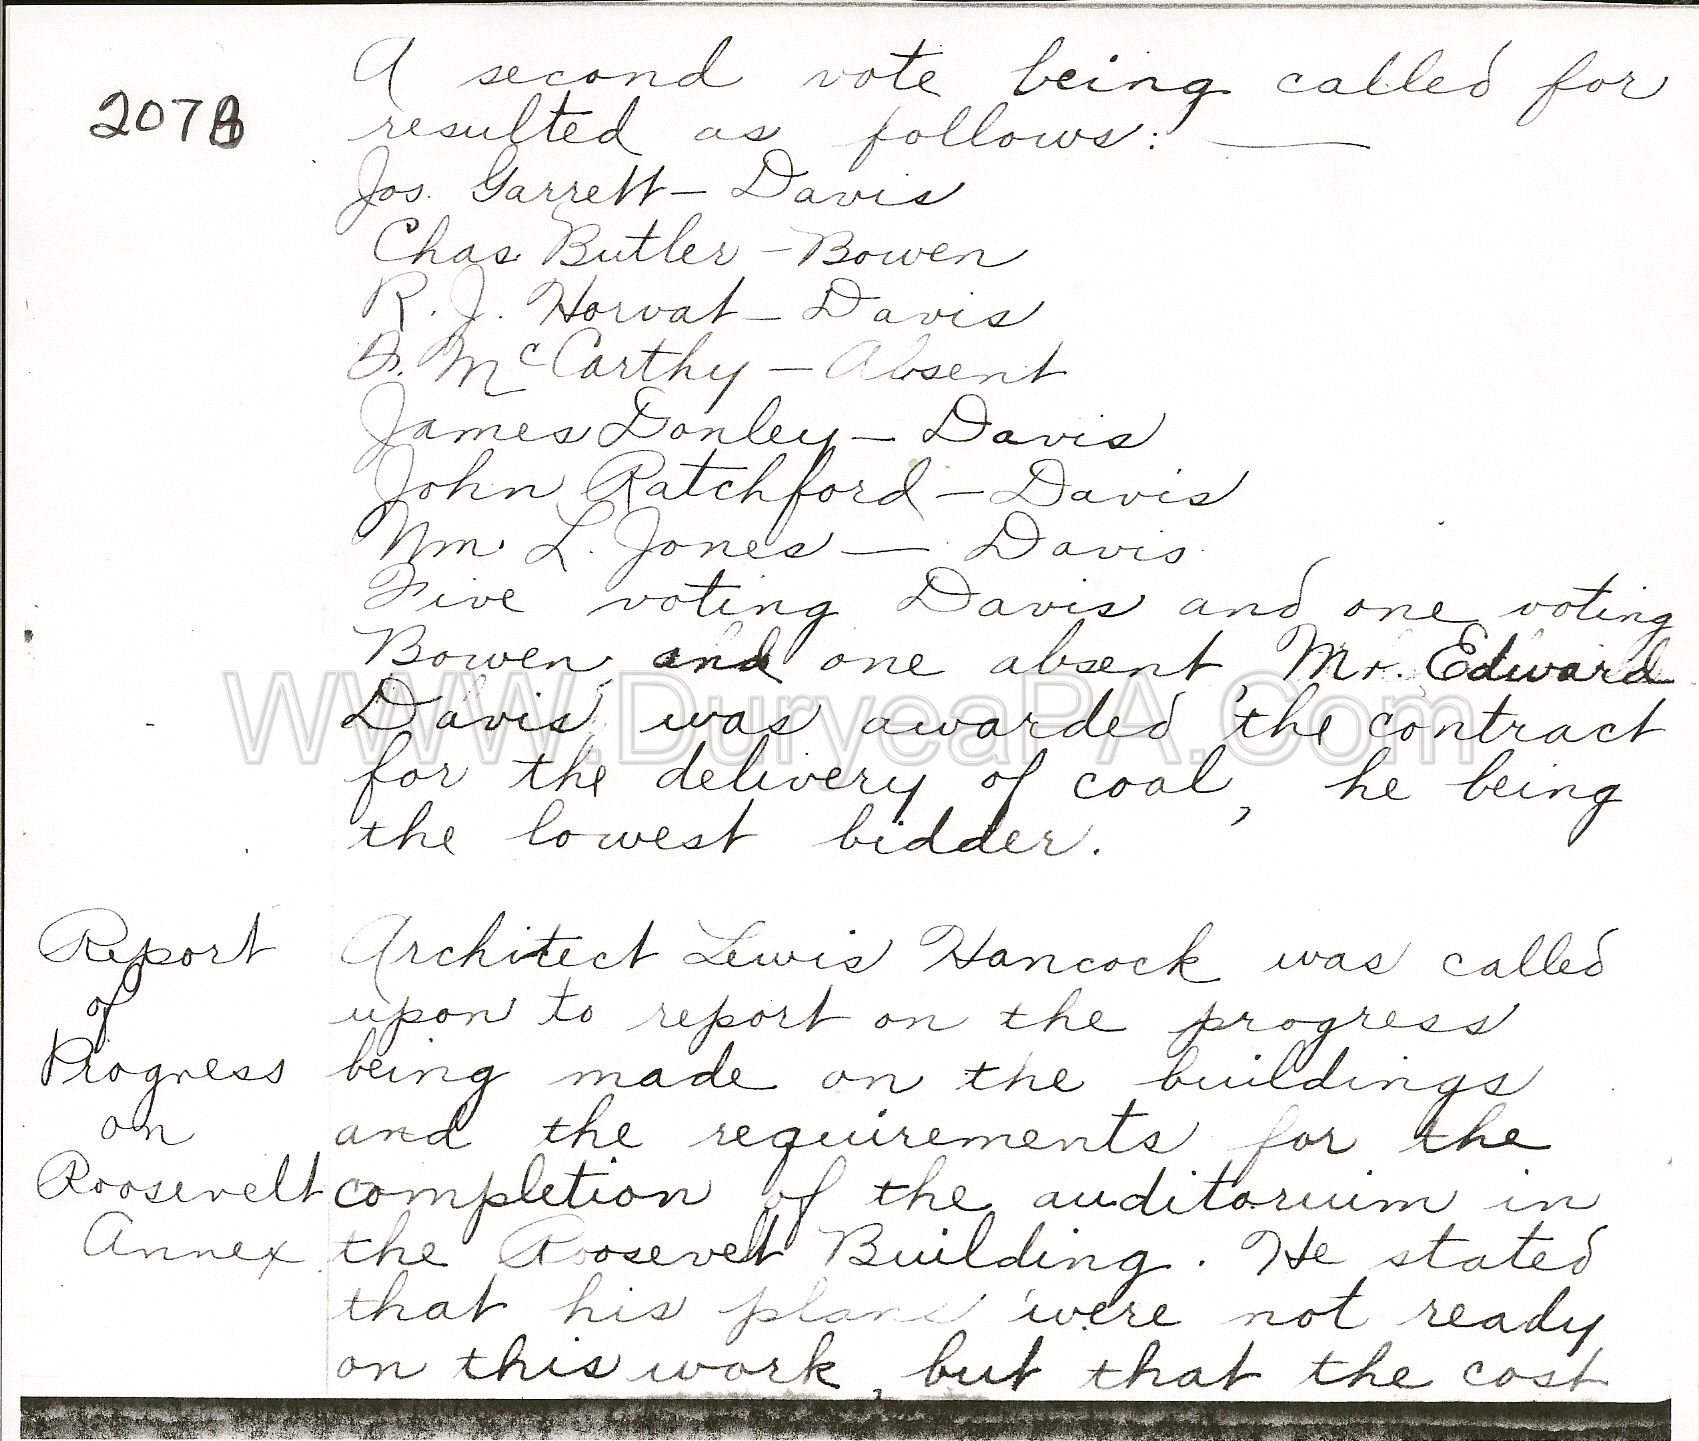 207B
A second vote being called for
resulted as follows: —
Jos. Garrett — Davis
Chas Butler — Bowen
R. J. Horvat — Davis
McCarthy — Absent
James Donley — Davis
John Ratchford — Davis
Wm L. Jones — Davis
Five voting Davis and one voting
Bowen, and one absent, Mr. Edward
Davis, was awarded the contract
for the delivery of coal, he being
the lowest bidder.
WWW.DuryeaPA.Com
Report
of
Progress
on
Roosevelt
Annex
Architect Lewis Hancock was called
upon to report on the progress
being made on the buildings
and the requirements for the
completion of the auditorium in
the Roosevelt Building. He stated
that his plans were not ready
on this work, but that the cost